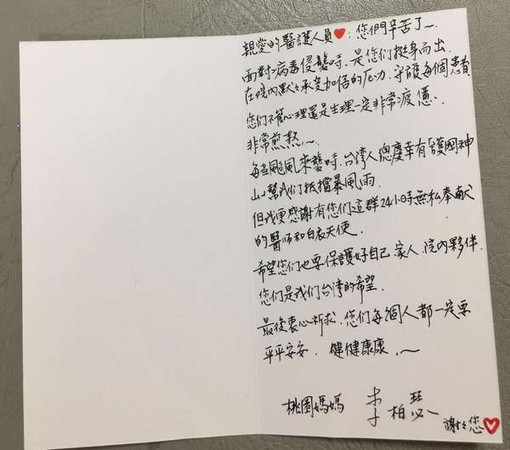 親愛的醫護人員❤:您們辛苦了~
面對病毒侵襲時,是您們挺身而出
在院內默默承受加倍的壓力,守護每個患者
您们不管心理還是生理一定非常疲憊、
非常煎熬~
每當颱風來襲時,台灣人總慶幸有護國神
山幫我们抵擋暴風雨
但我更感謝有您们這群24小時無私奉獻
的醫師和白衣天使.
希望您们也要保護好自己.家人.院內夥伴.
您们是我们台灣的希望.
最後衷心祈求,您们每個人都一定要
平平安安、健健康康,~
桃園媽媽 李柏瑟
謝謝您❤